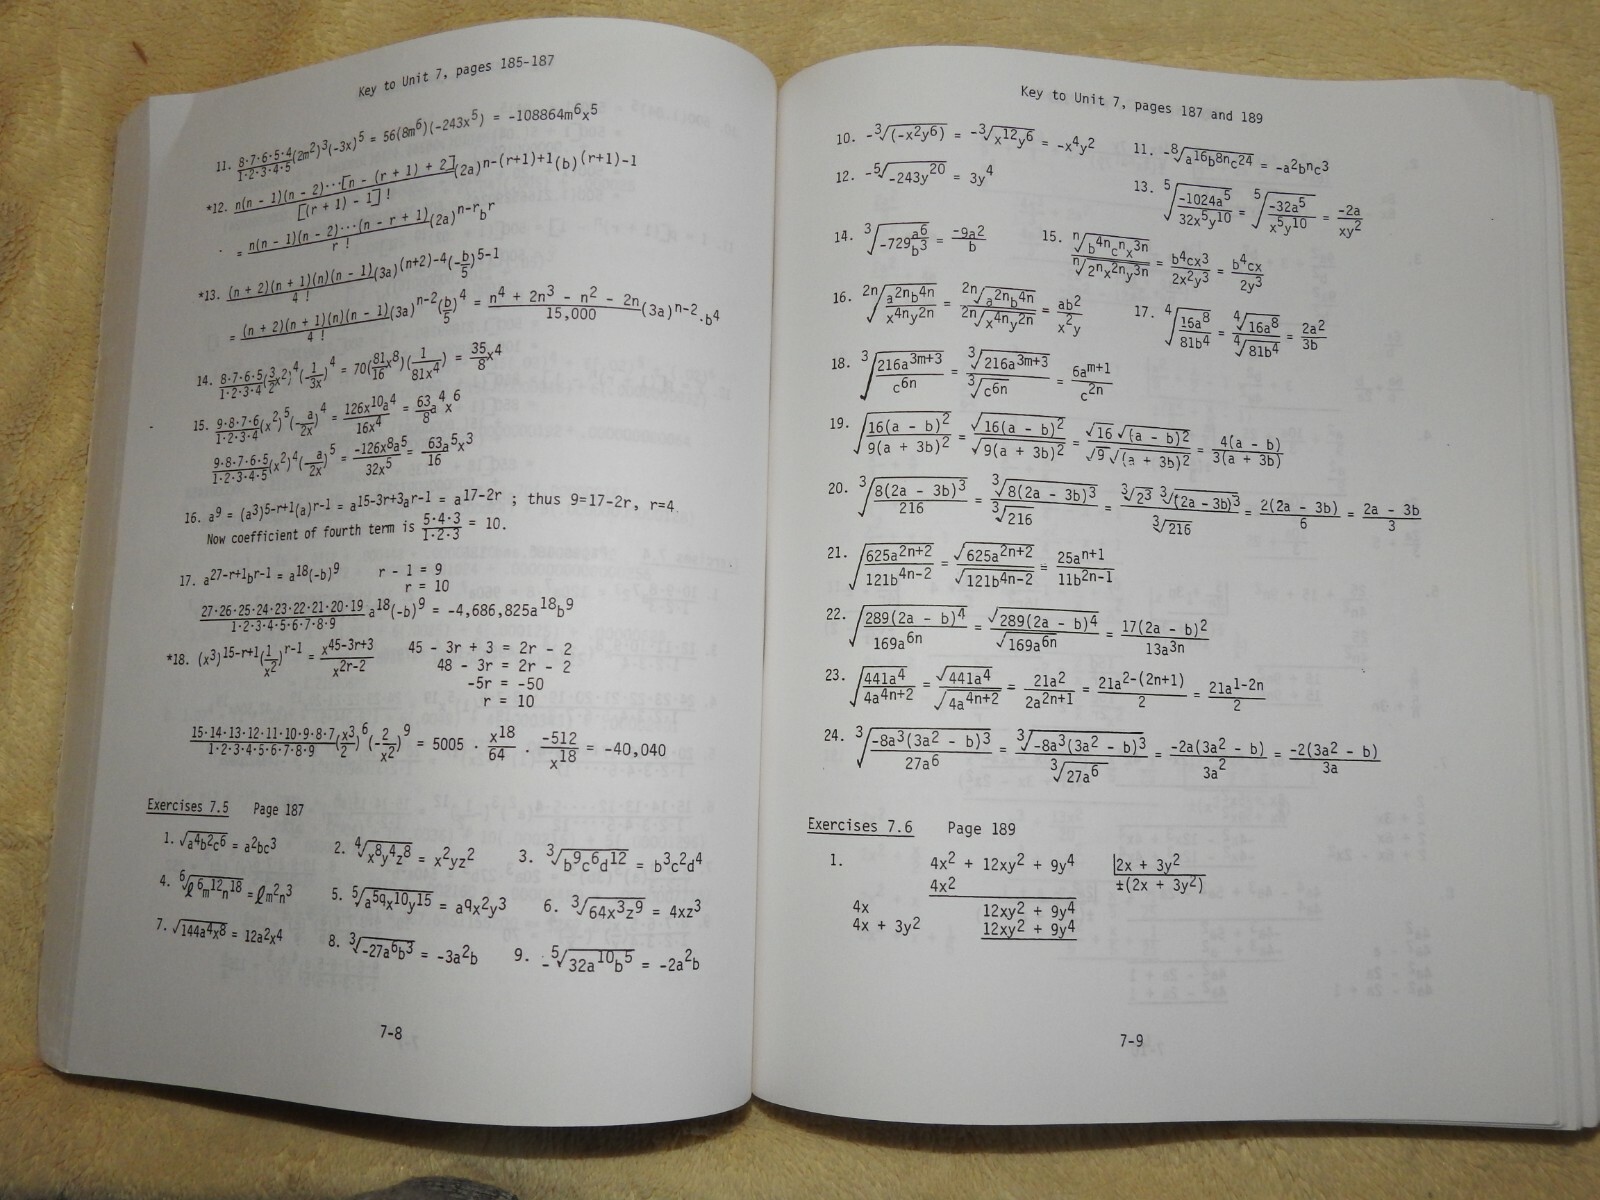 Key to Unit 7, pages 185-187
11. 8·7·6·5·4/1·2·3·4·5 (2m²)³(-3x)⁵ = 56(8m⁶)(-243x⁵) = -108864m⁶x⁵
*12. n(n - 1)(n - 2)···[n - (r + 1) + 2]/[(r + 1) - 1]! (2a)ⁿ⁻⁽ʳ⁺¹⁾⁺¹(b)⁽ʳ⁺¹⁾⁻¹
= n(n - 1)(n - 2)···(n - r + 1)/r! (2a)ⁿ⁻ʳbʳ
*13. (n + 2)(n + 1)(n)(n - 1)/4! (3a)⁽ⁿ⁺²⁾⁻⁴(-b/5)⁵⁻¹
= (n + 2)(n + 1)(n)(n - 1)/4! (3a)ⁿ⁻²(b/5)⁴ = n⁴ + 2n³ - n² - 2n/15,000 (3a)ⁿ⁻²·b⁴
14. 8·7·6·5/1·2·3·4 (3/2 x²)⁴(-1/3x)⁴ = 70(81/16 x⁸)(1/81x⁴) = 35/8 x⁴
15. 9·8·7·6/1·2·3·4 (x²)⁵(-a/2x)⁴ = 126x¹⁰a⁴/16x⁴ = 63/8 a⁴x⁶
9·8·7·6·5/1·2·3·4·5 (x²)⁴(-a/2x)⁵ = -126x⁸a⁵/32x⁵ = 63/16 a⁵x³
16. a⁹ = (a³)⁵⁻ʳ⁺¹(a)ʳ⁻¹ = a¹⁵⁻³ʳ⁺³aʳ⁻¹ = a¹⁷⁻²ʳ ; thus 9=17-2r, r=4.
Now coefficient of fourth term is 5·4·3/1·2·3 = 10.
17. a²⁷⁻ʳ⁺¹bʳ⁻¹ = a¹⁸(-b)⁹ r - 1 = 9
r = 10
27·26·25·24·23·22·21·20·19/1·2·3·4·5·6·7·8·9 a¹⁸(-b)⁹ = -4,686,825a¹⁸b⁹
*18. (x³)¹⁵⁻ʳ⁺¹(1/x²)ʳ⁻¹ = x⁴⁵⁻³ʳ⁺³/x²ʳ⁻² 45 - 3r + 3 = 2r - 2
48 - 3r = 2r - 2
-5r = -50
r = 10
15·14·13·12·11·10·9·8·7/1·2·3·4·5·6·7·8·9 (x³/2)⁶(-2/x²)⁹ = 5005 · x¹⁸/64 · -512/x¹⁸ = -40,040
Exercises 7.5 Page 187
1. √a⁴b²c⁶ = a²bc³ 2. ⁴√x⁸y⁴z⁸ = x²yz² 3. ³√b⁹c⁶d¹² = b³c²d⁴
4. ⁶√ℓ⁶m¹²n¹⁸ = ℓm²n³ 5. ⁵√a⁵qx¹⁰y¹⁵ = aqx²y³ 6. ³√64x³z⁹ = 4xz³
7. √144a⁴x⁸ = 12a²x⁴ 8. ³√-27a⁶b³ = -3a²b 9. -⁵√32a¹⁰b⁵ = -2a²b
7-8
Key to Unit 7, pages 187 and 189
10. -³√(-x²y⁶) = -³√x¹²y⁶ = -x⁴y² 11. -⁸√a¹⁶b⁸ⁿc²⁴ = -a²bⁿc³
12. -⁵√-243y²⁰ = 3y⁴ 13. ⁵√-1024a⁵/32x⁵y¹⁰ = ⁵√-32a⁵/x⁵y¹⁰ = -2a/xy²
14. ³√-729a⁶/b³ = -9a²/b 15. ⁿ√b⁴ⁿcⁿx³ⁿ/ⁿ√2ⁿx²ⁿy³ⁿ = b⁴cx³/2x²y³ = b⁴cx/2y³
16. ²ⁿ√a²ⁿb⁴ⁿ/x⁴ⁿy²ⁿ = ²ⁿ√a²ⁿb⁴ⁿ/²ⁿ√x⁴ⁿy²ⁿ = ab²/x²y 17. ⁴√16a⁸/81b⁴ = ⁴√16a⁸/⁴√81b⁴ = 2a²/3b
18. ³√216a³ᵐ⁺³/c⁶ⁿ = ³√216a³ᵐ⁺³/³√c⁶ⁿ = 6aᵐ⁺¹/c²ⁿ
19. √16(a - b)²/9(a + 3b)² = √16(a - b)²/√9(a + 3b)² = √16 √(a - b)²/√9 √(a + 3b)² = 4(a - b)/3(a + 3b)
20. ³√8(2a - 3b)³/216 = ³√8(2a - 3b)³/³√216 = ³√2³ ³√(2a - 3b)³/³√216 = 2(2a - 3b)/6 = 2a - 3b/3
21. √625a²ⁿ⁺²/121b⁴ⁿ⁻² = √625a²ⁿ⁺²/√121b⁴ⁿ⁻² = 25aⁿ⁺¹/11b²ⁿ⁻¹
22. √289(2a - b)⁴/169a⁶ⁿ = √289(2a - b)⁴/√169a⁶ⁿ = 17(2a - b)²/13a³ⁿ
23. √441a⁴/4a⁴ⁿ⁺² = √441a⁴/√4a⁴ⁿ⁺² = 21a²/2a²ⁿ⁺¹ = 21a²⁻⁽²ⁿ⁺¹⁾/2 = 21a¹⁻²ⁿ/2
24. ³√-8a³(3a² - b)³/27a⁶ = ³√-8a³(3a² - b)³/³√27a⁶ = -2a(3a² - b)/3a² = -2(3a² - b)/3a
Exercises 7.6 Page 189
1. 4x² + 12xy² + 9y⁴ |2x + 3y²
4x² ±(2x + 3y²)
4x 12xy² + 9y⁴
4x + 3y² 12xy² + 9y⁴
7-9